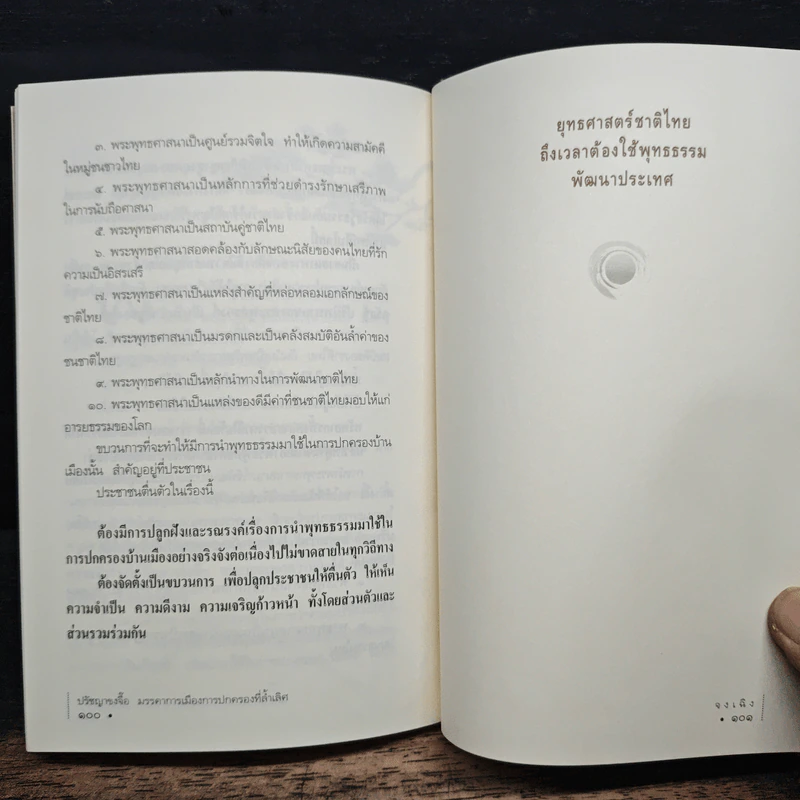 ๓. พระพุทธศาสนาเป็นศูนย์รวมจิตใจ ทำให้เกิดความสามัคคี
ในหมู่ชนชาวไทย
๔. พระพุทธศาสนาเป็นหลักการที่ช่วยดำรงรักษาเสรีภาพ
ในการนับถือศาสนา
๕. พระพุทธศาสนาเป็นสถาบันคู่ชาติไทย
๖. พระพุทธศาสนาสอดคล้องกับลักษณะนิสัยของคนไทยที่รัก
ความเป็นอิสรเสรี
๗. พระพุทธศาสนาเป็นแหล่งสำคัญที่หล่อหลอมเอกลักษณ์ของ
ชาติไทย
๘. พระพุทธศาสนาเป็นมรดกและเป็นคลังสมบัติอันล้ำค่าของ
ชนชาติไทย
๙. พระพุทธศาสนาเป็นหลักนำทางในการพัฒนาชาติไทย
๑๐. พระพุทธศาสนาเป็นแหล่งของดีมีค่าที่ชนชาติไทยมอบให้แก่
อารยธรรมของโลก
ขบวนการที่จะทำให้มีการนำพุทธธรรมมาใช้ในการปกครองบ้าน
เมืองนั้น สำคัญอยู่ที่ประชาชน
ประชาชนตื่นตัวในเรื่องนี้
ต้องมีการปลูกฝังและรณรงค์เรื่องการนำพุทธธรรมมาใช้ใน
การปกครองบ้านเมืองอย่างจริงจังต่อเนื่องไปไม่ขาดสายในทุกวิถีทาง
ต้องจัดตั้งเป็นขบวนการ เพื่อปลุกประชาชนให้ตื่นตัว ให้เห็น
ความจำเป็น ความดีงาม ความเจริญก้าวหน้า ทั้งโดยส่วนตัวและ
ส่วนรวมร่วมกัน
ปรัชญาขงจื๊อ มรรคาการเมืองการปกครองที่ล้ำเลิศ
๑๐๐ •
ยุทธศาสตร์ชาติไทย
ถึงเวลาต้องใช้พุทธธรรม
พัฒนาประเทศ
จงเฉิง
• ๑๐๑